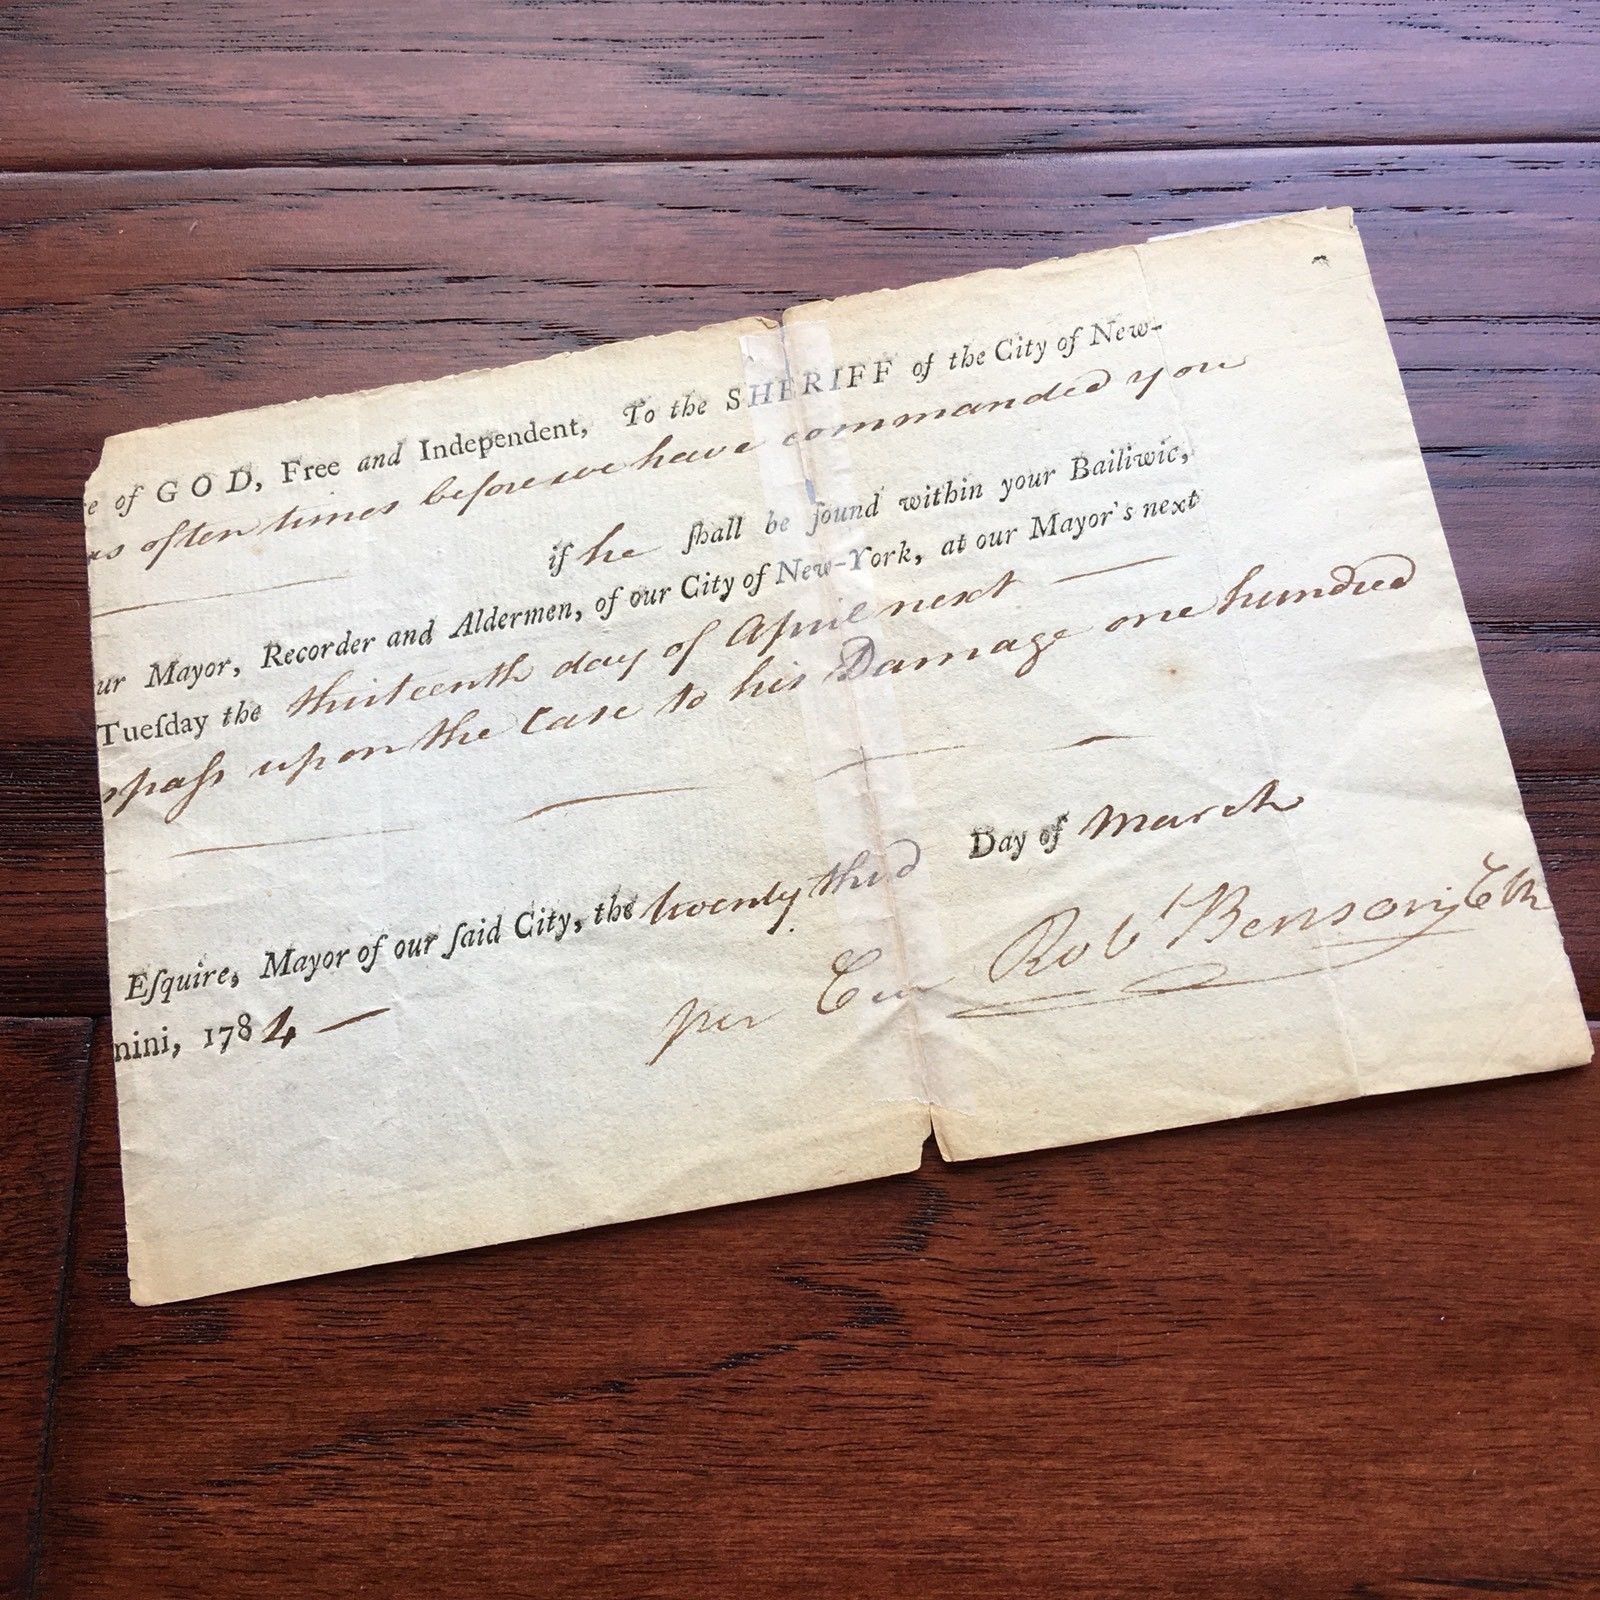 e of GOD, Free and Independent, To the SHERIFF of the City of New-
as often times before we have commanded you
if he ſhall be found within your Bailiwic,
ur Mayor, Recorder and Aldermen, of our City of New-York, at our Mayor's next
Tueſday the thirteenth day of April next
spaſs upon the Case to his Damage one hundred
Eſquire, Mayor of our ſaid City, the twenty third Day of March
nini, 1784
per Cur Robt Benson, Clk